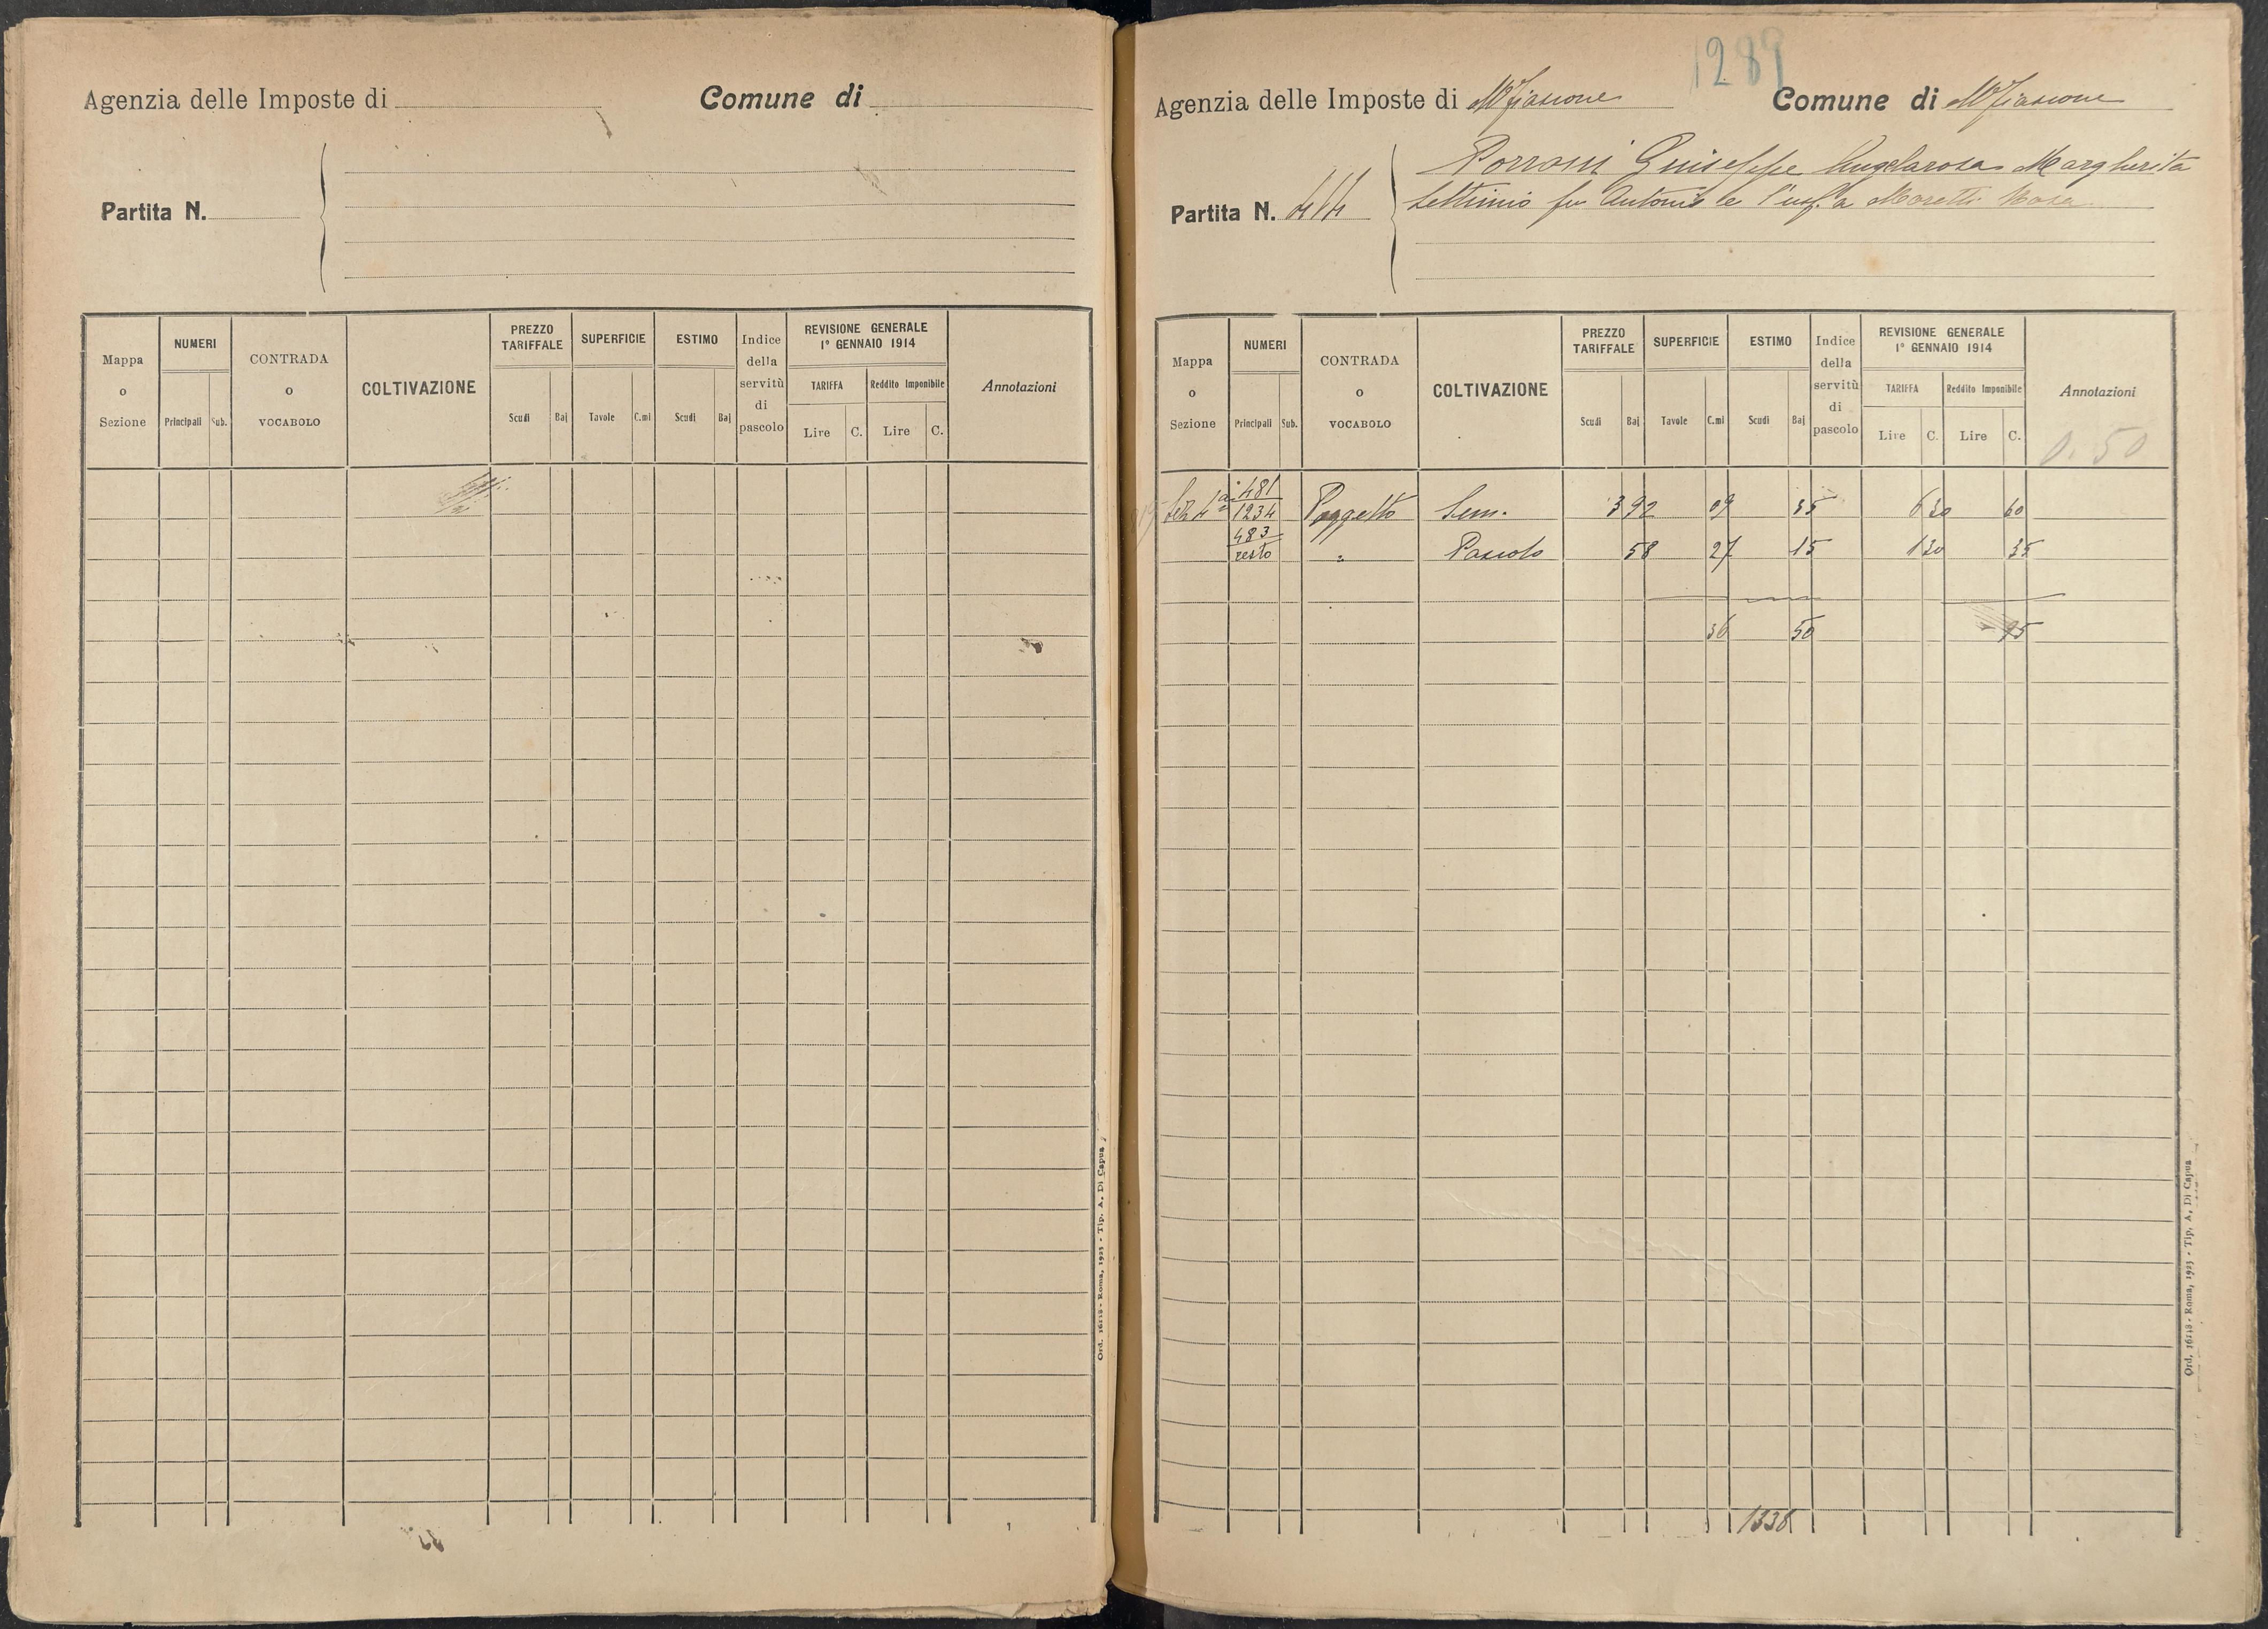 Agenzia delle Imposte di
Comune di
Partita N.
Mappa o Sezione
NUMERI
Principali
Sub.
CONTRADA o VOCABOLO
COLTIVAZIONE
PREZZO TARIFFALE
Scudi
Baj
SUPERFICIE
Tavole
C.mi
ESTIMO
Scudi
Baj
Indice della servitù di pascolo
REVISIONE GENERALE
1° GENNAIO 1914
TARIFFA
Reddito Imponibile
Lire
C.
Lire
C.
Annotazioni
Ord. 16118 - Roma, 1923 - Tip. A. Di Capua
1289
Agenzia delle Imposte di Mfiascone
Comune di Mfiascone
Porroni Giuseppe Angelarosa Margherita
Partita N.
Settimio fu Antonio e l'usf. a Moretti Rosa
Mappa o Sezione
NUMERI
Principali
Sub.
CONTRADA o VOCABOLO
COLTIVAZIONE
PREZZO TARIFFALE
Scudi
Baj
SUPERFICIE
Tavole
C.mi
ESTIMO
Scudi
Baj
Indice della servitù di pascolo
REVISIONE GENERALE
1° GENNAIO 1914
TARIFFA
Reddito Imponibile
Lire
C.
Lire
C.
Annotazioni
0.50
Sez 4a 481/1234 Poggetto Sem. 392 09 35 6 30 60
483/resto " Pascolo 58 27 15 1 30 35
36 50 95
1338
Ord. 16118 - Roma, 1923 - Tip. A. Di Capua